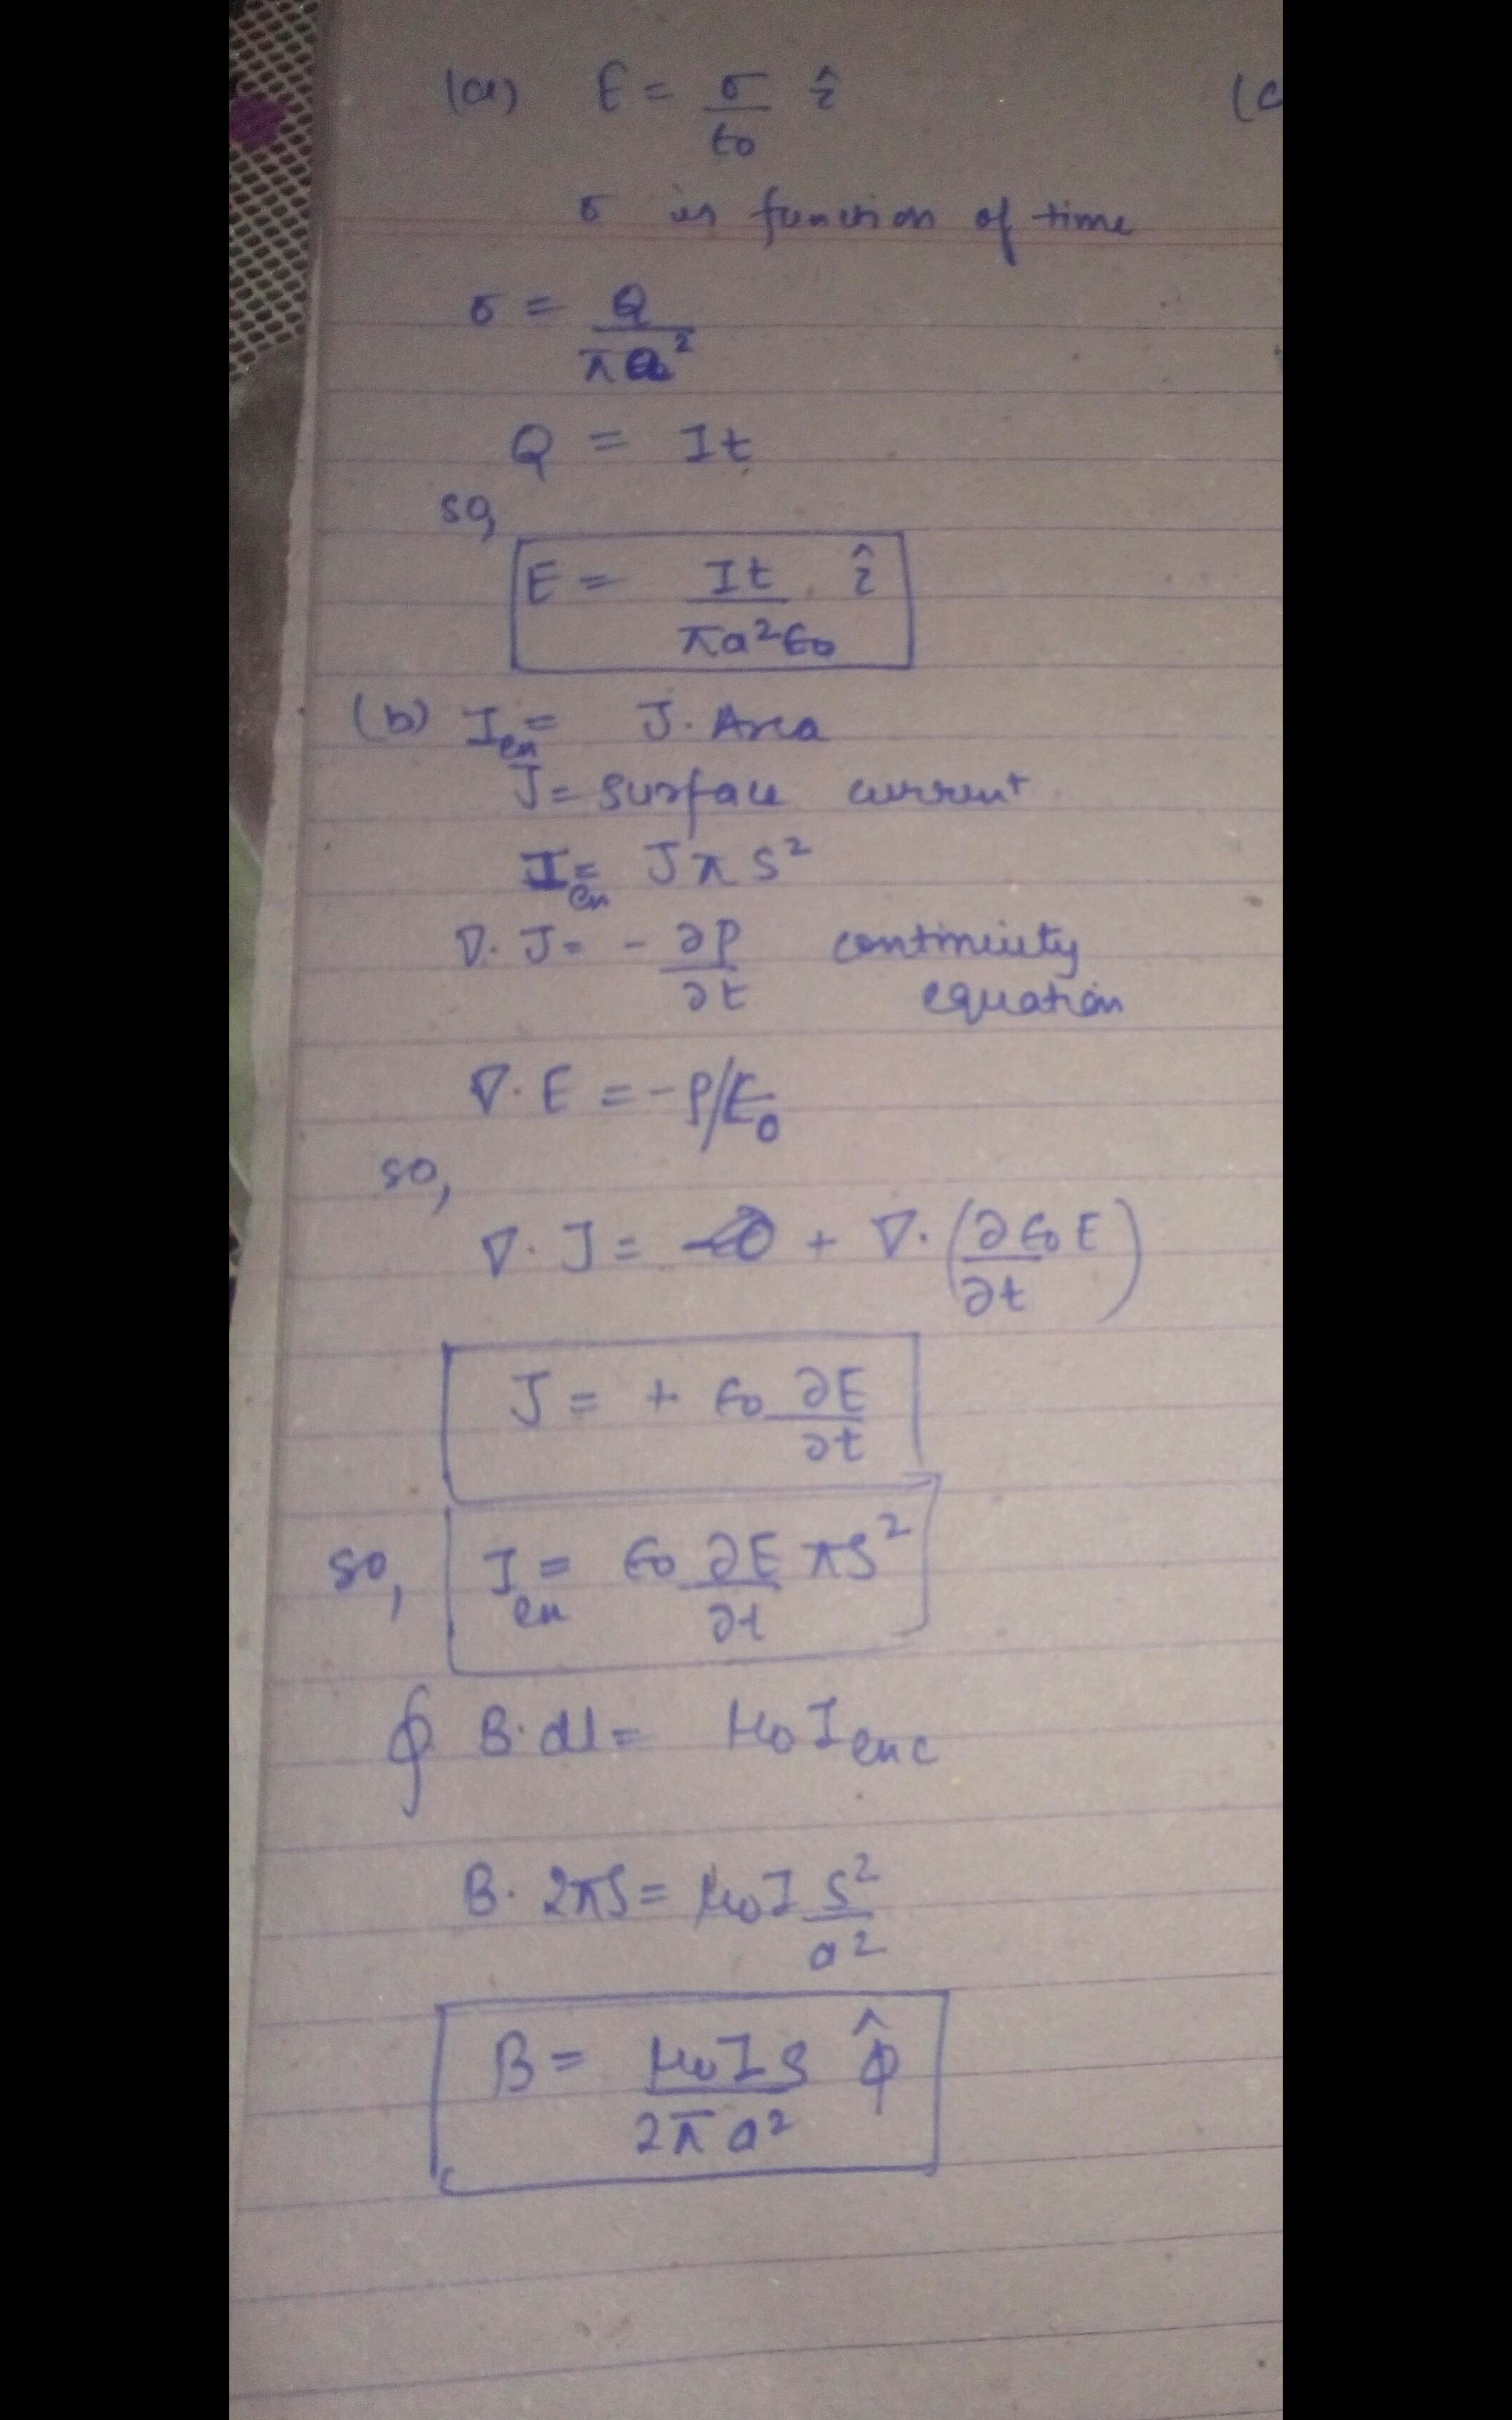 (a) E = σ/ϵ0 ẑ
(c
σ is function of time
σ = Q/πa²
Q = It
so,
E = It/πa²ϵ0 ẑ
(b) Ien = J. Area
J = surface current
Ien = Jπs²
∇. J = - ∂ρ/∂t continuity
equation
∇. E = -ρ/ϵ0
so,
∇. J = + ∇. (∂ϵ0E/∂t)
J = + ϵ0 ∂E/∂t
so, Ien = ϵ0 ∂E/∂t πs²
∮ B. dl = μ0 Ienc
B. 2πs = μ0I s²/a²
B = μ0Is/2πa² φ̂